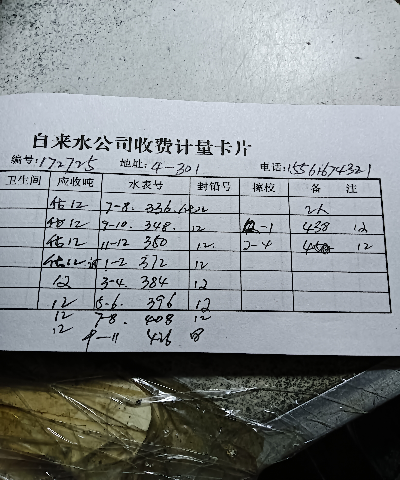 自来水公司收费计量卡片
编号:172725 地址:4-301 电话:15561674321
卫生间 应收吨 水表号 封铅号 擦校 备 注
估12 7-8. 336. 12 2人
估12 9-10. 348. 12 -1 438 12
估12 11-12 360 12. 2-4 450 12
估12 1-2 372 12
12 3-4. 384 12
12 5-6. 396 12
12 7-8. 408 12
12 9-11 426 18